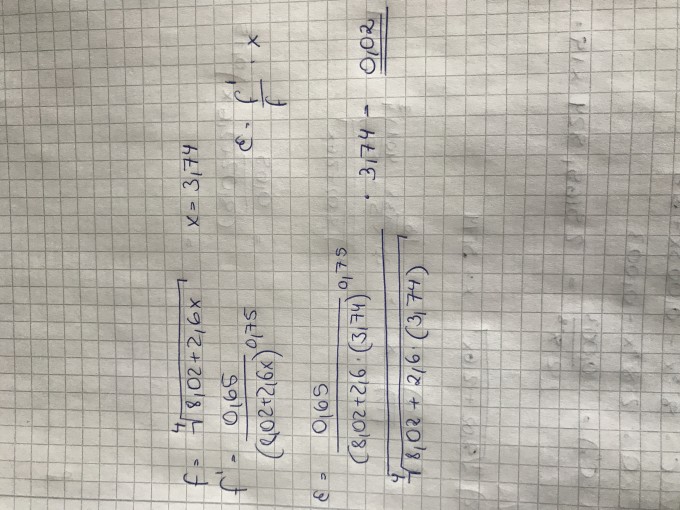 f = ∜(8,02+2,6x) x = 3,74
f' = 0,65 / (8,02+2,6x)^0,75 ε = f'/f · x
ε = (0,65 / (8,02+2,6·(3,74))^0,75) / ∜(8,02 + 2,6·(3,74)) · 3,74 = 0,02